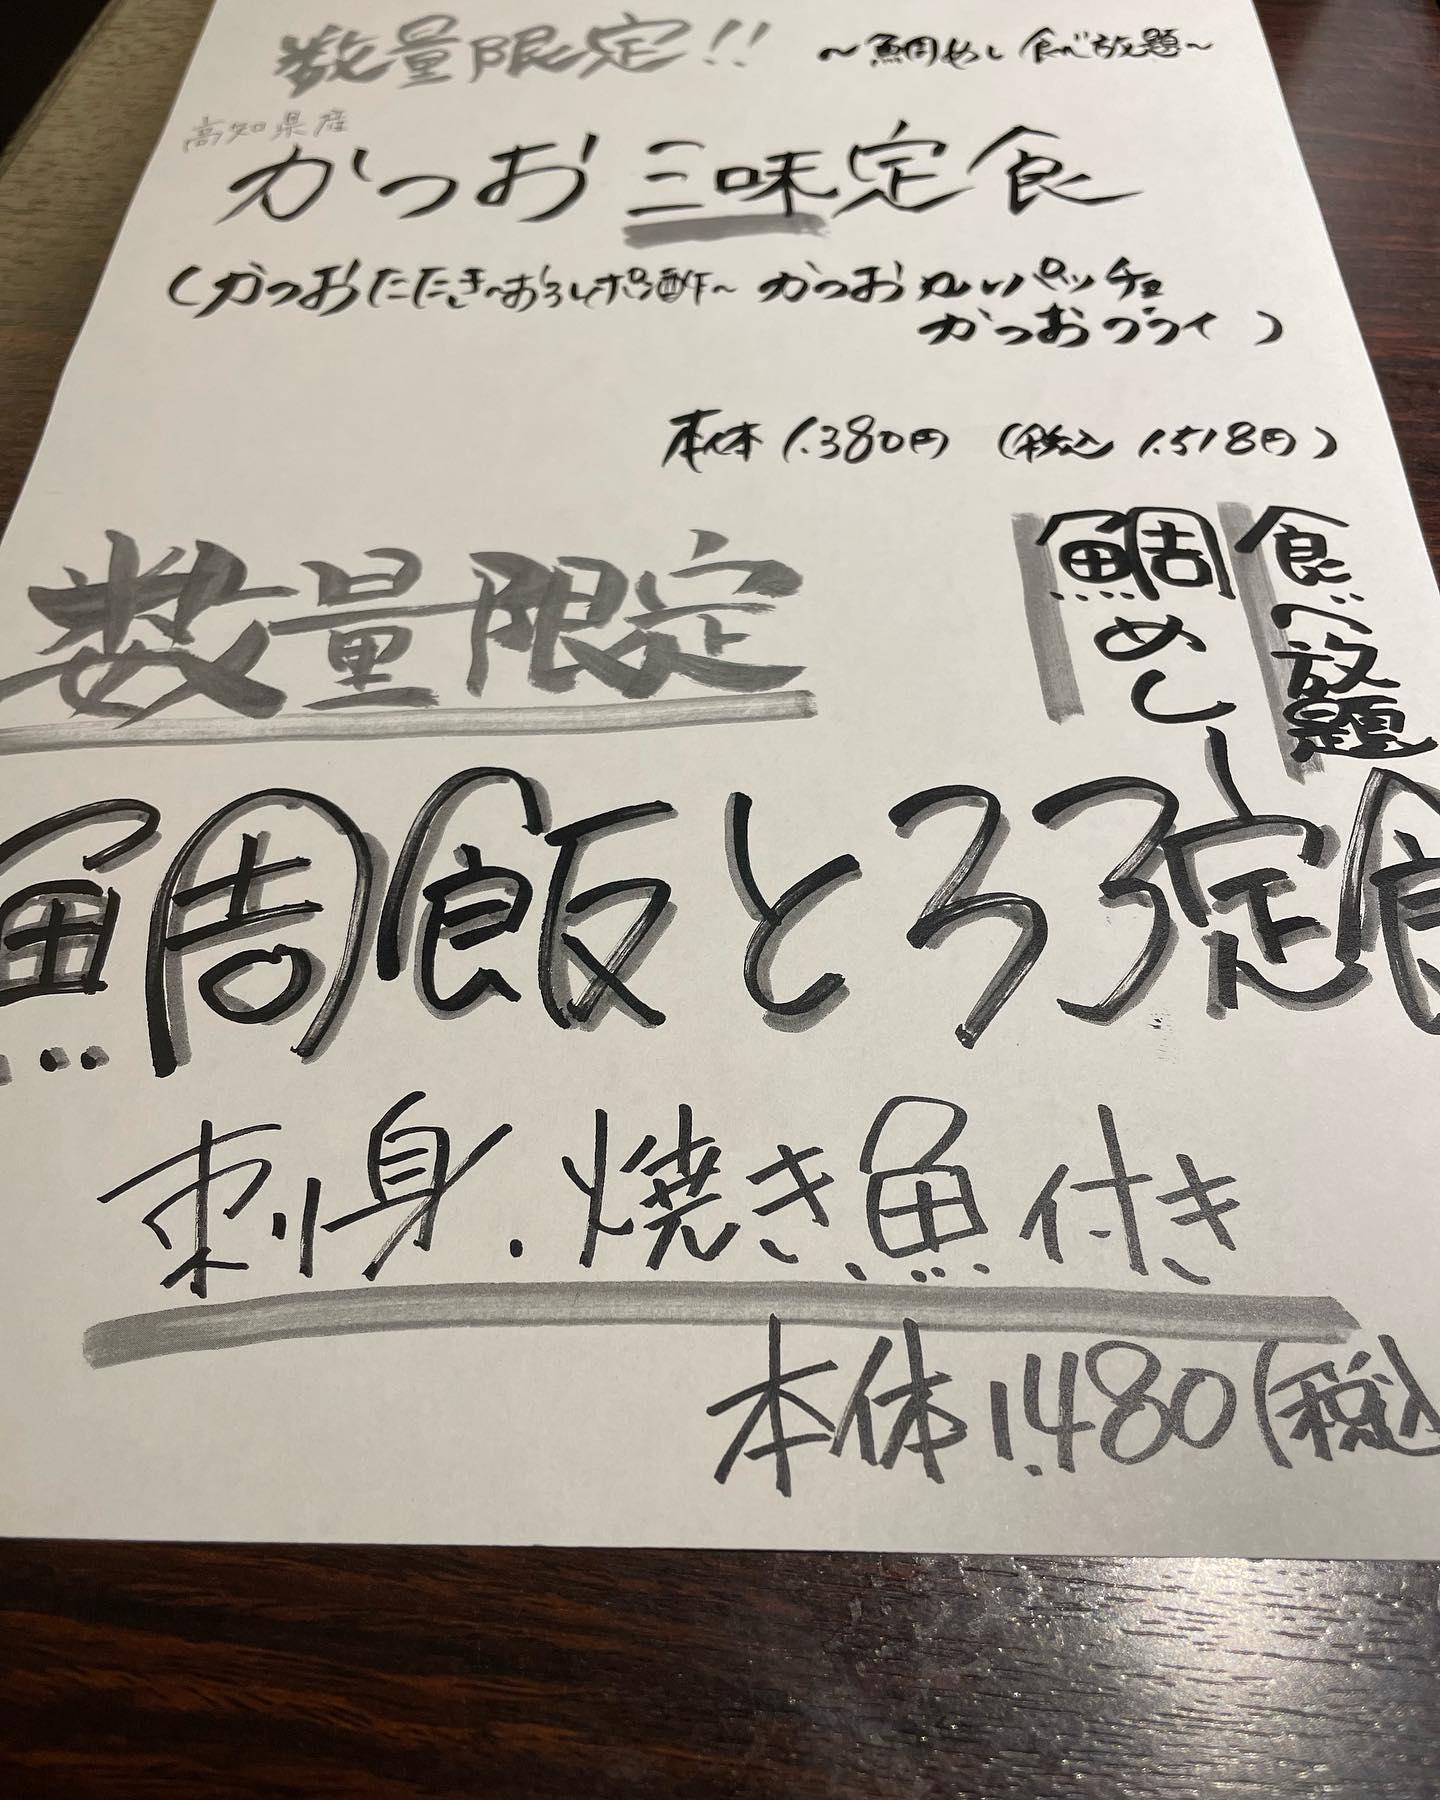 数量限定!! ～鯛めし食べ放題～
高知県産
かつお三味定食
(かつおたたき～おろしポン酢～ かつおカルパッチョ
かつおフライ)
本体 1.380円 (税込 1.518円)
数量限定
食べ放題
鯛めし
鯛飯とろろ定食
刺身.焼き魚付き
本体1.480(税込